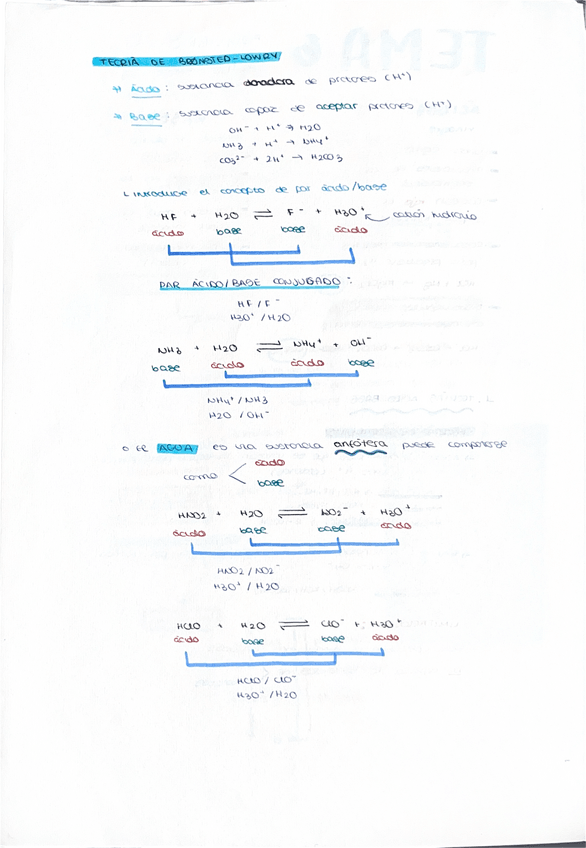 TEORÍA DE BRÖNSTED-LOWRY
Ácido: sustancia donadora de protones (H⁺)
Base: sustancia capaz de aceptar protones (H⁺)
OH⁻ + H⁺ → H2O
NH3 + H⁺ → NH4⁺
CO3²⁻ + 2H⁺ → H2CO3
Introduce el concepto de par ácido/base
HF + H2O ⇌ F⁻ + H3O⁺ catión hidronio
ácido base base ácido
PAR ÁCIDO/BASE CONJUGADO:
HF / F⁻
H3O⁺ / H2O
NH3 + H2O ⇌ NH4⁺ + OH⁻
base ácido ácido base
NH4⁺ / NH3
H2O / OH⁻
o El AGUA es una sustancia anfótera puede comportarse
como ácido
base
HNO2 + H2O ⇌ NO2⁻ + H3O⁺
ácido base base ácido
HNO2 / NO2⁻
H3O⁺ / H2O
HClO + H2O ⇌ ClO⁻ + H3O⁺
ácido base base ácido
HClO / ClO⁻
H3O⁺ / H2O